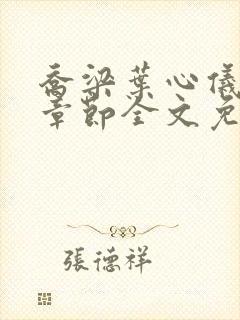 喬梁葉心儀
章節全文免
張德祥